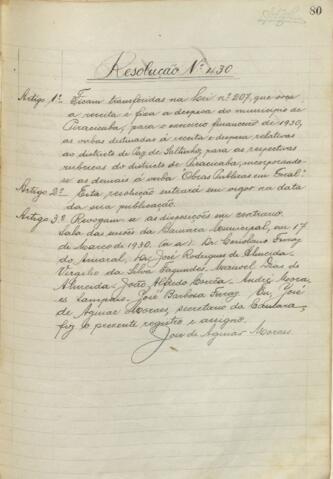 80
Resolução Nº 430
Artigo 1º Ficam transferidas na Lei nº 207, que orça
a receita e fixa a despesa do municipio de
Piracicaba, para o exercicio financeiro de 1930,
as verbas destinadas á receita e despesa relativas
ao districto de Paz de Saltinho, para as respectivas
rubricas do districto de Piracicaba, incorporando-
se as demais á verba Obras Publicas em Geral.
Artigo 2º Esta resolução entrará em vigor na data
da sua publicação.
Artigo 3º Revogam-se as disposições em contrario.
Sala das sessões da Camara Municipal, em 17
de Março de 1930. (a.a.) Dr. Coriolano Ferraz
do Amaral, Dr. José Rodrigues de Almeida,
Virgilio da Silva Fagundes, Manoel Dias de
Almeida, João Alfredo Corrêa, André Mora-
es Sampaio, José Barbosa Ferraz. Eu, José
de Aguiar Moraes, secretario da Camara,
fiz o presente registro e assigno.
José de Aguiar Moraes